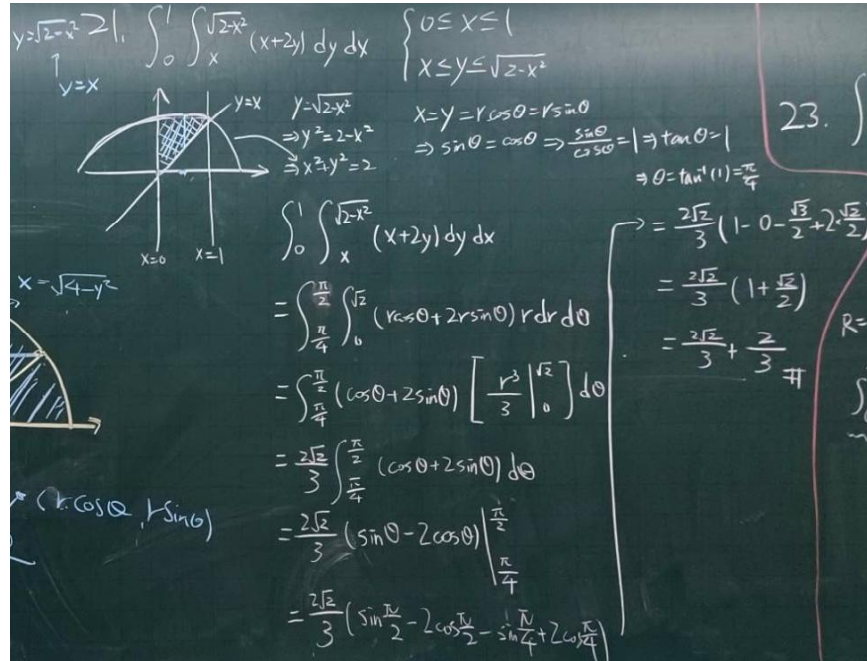 y=√(2-x²)
↑
y=x
21. ∫₀¹ ∫ₓ^√(2-x²) (x+2y) dy dx
{ 0≤x≤1
x≤y≤√(2-x²)
y=x
x=0 x=1
y=√(2-x²)
⇒ y²=2-x²
⇒ x²+y²=2
x=y=rcosθ=rsinθ
⇒ sinθ=cosθ ⇒ sinθ/cosθ=1 ⇒ tanθ=1
⇒ θ=tan⁻¹(1)=π/4
∫₀¹ ∫ₓ^√(2-x²) (x+2y) dy dx
= ∫_{π/4}^{π/2} ∫₀^√2 (rcosθ+2rsinθ) r dr dθ
= ∫_{π/4}^{π/2} (cosθ+2sinθ) [ r³/3 |₀^√2 ] dθ
= 2√2/3 ∫_{π/4}^{π/2} (cosθ+2sinθ) dθ
= 2√2/3 (sinθ-2cosθ) |_{π/4}^{π/2}
= 2√2/3 (sin π/2 - 2cos π/2 - sin π/4 + 2cos π/4)
= 2√2/3 (1-0-√3/2+2·√2/2)
= 2√2/3 (1+√2/2)
= 2√2/3 + 2/3 #
x=√(4-y²)
(r cosθ, r sinθ)
23. ∫
R=
∫